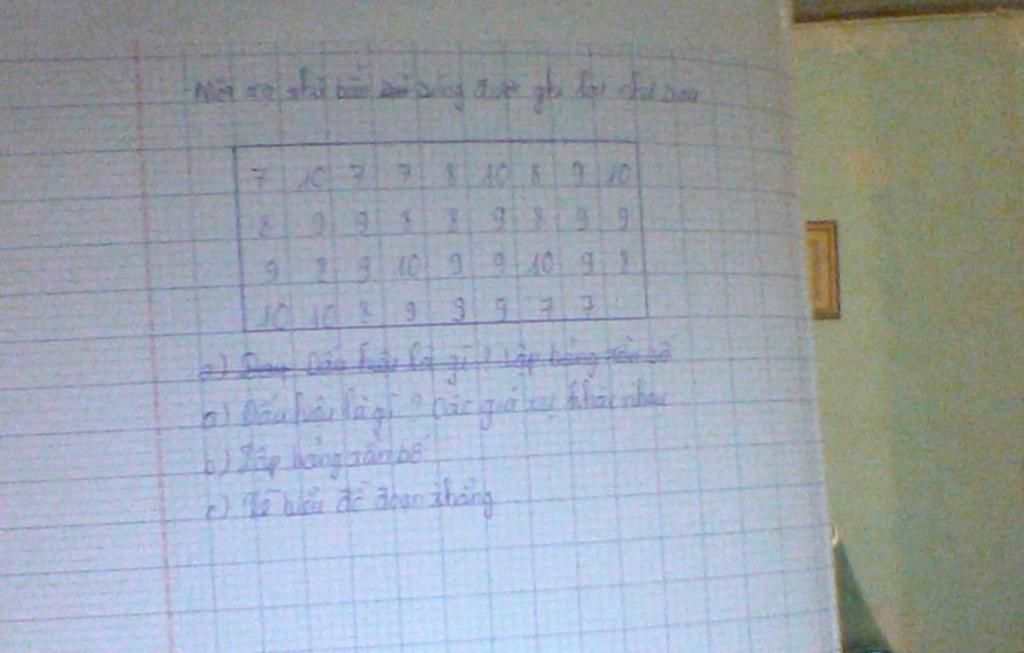 Một xạ thủ bắn súng được ghi lại như sau
7 10 7 7 8 10 8 9 10
8 9 9 8 8 9 8 9 9
9 8 9 10 9 9 10 9 8
10 10 8 9 9 9 7 7
a) Dấu hiệu là gì ? Lập bảng tần số
a) Dấu hiệu là gì ? Các giá trị khác nhau
b) Lập bảng tần số
c) Vẽ biểu đồ đoạn thẳng